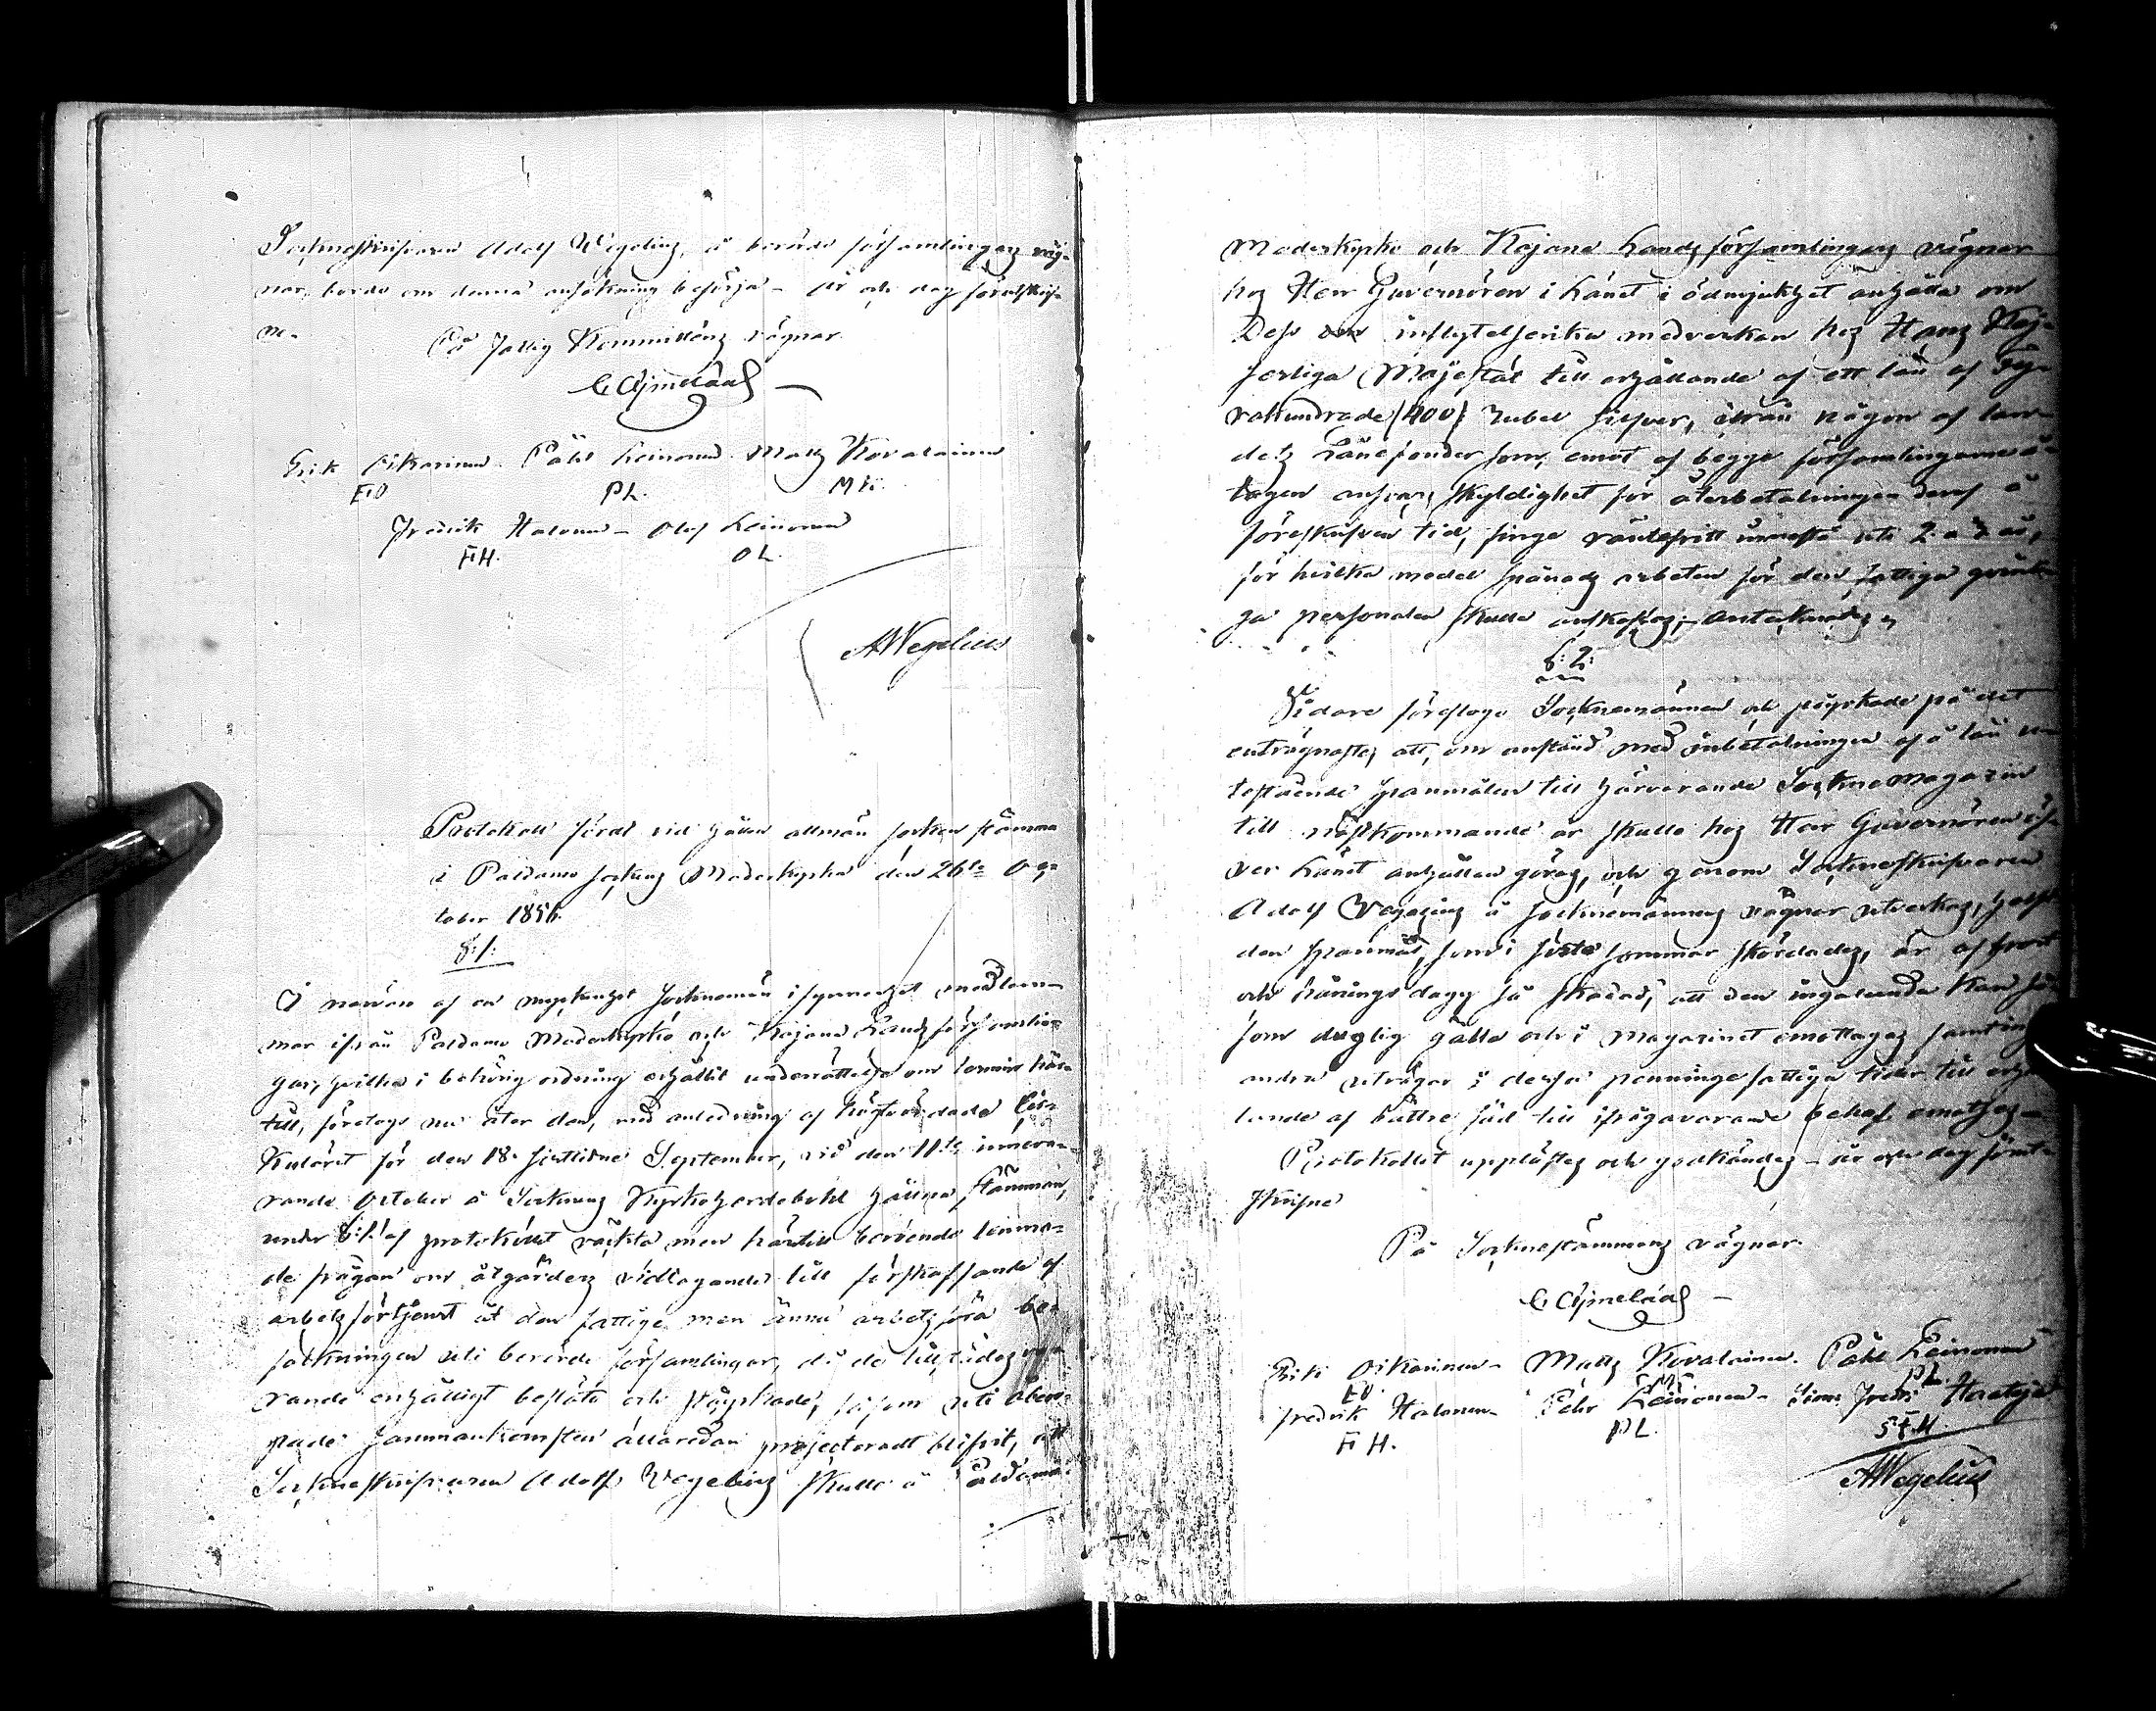 Sockneskrifvaren Adolf Wegelius, å berörde församlingars väg-
nar, borde om denna ansökning besörja - År och dag föreskrif-
ne.
På fattig Kommitténs vägnar
C Ajmelaeus
Erik Oikarinen Påhl Leinonen Matts Kovalainen
E.O P.L. M.K.
Fredrik Halonen - Olof Leinonen
F.H. O.L.
AWegelius
Protokoll fördt vid hållen allmän socken stämma
i Paldamo sockens Moderkyrka den 26te Oc-
tober 1856.
§:1:
I närvaro af en myckenhet Socknemän i synnerhet medlem-
mar ifrån Paldamo Moderkyrko och Kajana Lands församlin-
gar, hvilka i behörig ordning erhållit underrättelse om termin här-
till, företogs nu åter den, med anledning af högtvördade Cir-
kuläret för den 18 sistlidne September, vid den 11te inneva-
rande October å Sockens Kyrkoherdebohl hållna stämman,
under §:1: af protokollet väckta men härtill beroende lemna-
de frågan om åtgärders vidtagande till förskaffande af
arbetsförtjenst åt den fattiga men ännu arbetsföra be-
folkningen uti berörde församlingar, då de tillstädesva-
rande enhälligt besloto och påyrkade, såsom uti åbero-
pade sammankomsten allaredan projecteradt blifvit, att
Socknskrifvaren Adolf Wegelius skulle å Paldamo
Moderkyrko och Kajana Lands församlingars vägnar
hos Herr Guvernören i Länet i ödmjukhet anhålla om
Dess inflytelserika medverkan hos Hans Kej-
serliga Majestät till erhållande af ett lån af Fy-
rahundrade (400) Rubel Silfver, ifrån någon af lan-
dets Lånefonder som, emot af begge församlingarne å-
tagen ansvars skyldighet för återbetalningen deraf å
föreskrifven tid, finge räntefritt innestå uti 2 a 3 år,
för hvilka medel spånads arbeten för den fattiga qvinli-
ga personalen skulle anskaffas; - antecknades.
§:2:
Vidare föreslogo Socknemännen och påyrkade på det
enträgnaste, att, om anstånd med inbetalningen af å lån u-
testående spannmålen till härvarande Sockne magazin
till nästkommande år skulle hos Herr Guvernören öf-
ver Länet anhållan göras, och genom Sockneskrifvaren
Adolf Wegelius å Socknemännens vägnar utverkas,
den spannmål, som i sista sommar skördades, är af frost
och dagg så skadad, att den ingalunda kan så-
som duglig gälla och i Magazinet emottagas samt
andra utvägar i dessa penningefattiga tider till erhål-
lande af bättre säd till ifrågavarande behof
Protokollet upplästes och godkändes - år och dag förut-
skrifne
På Sockne stämmans vägnar.
C Ajmelaeus
Erik Oikarinen - Matts Kovalainen. Påhl Leinonen
E.O. M.K. P.L.
Fredrik Halonen - Pehr Leinonen - Sim: Fredr:
F.H. P.L. S.F.H.
AWegelius